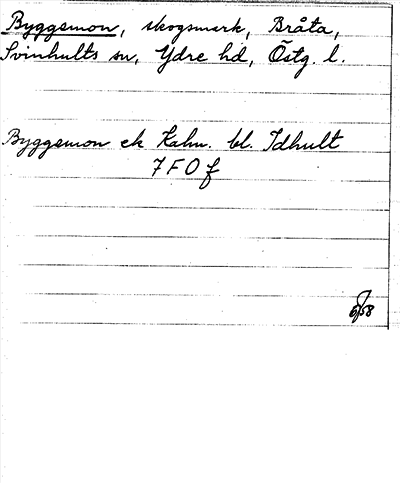 Byggemon, skogsmark, Bråta,
Svinhults sn, Ydre hd, Östg. l.
Byggemon ek Kahn. bl. Idhult
7 F O f